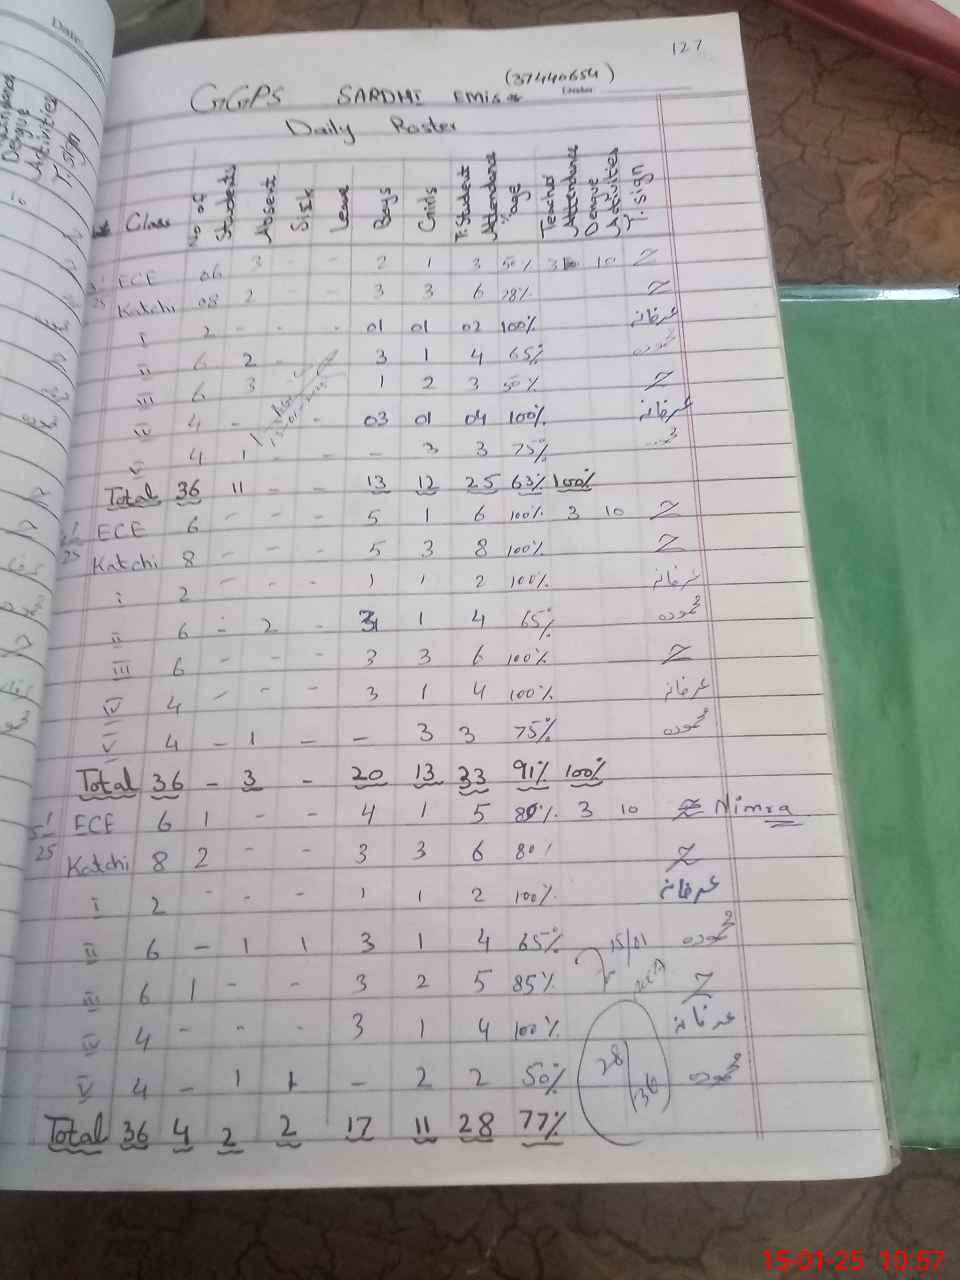 127
GGPS SARDHI EMIS (37440654)
Daily Roster
Class No of Students Absent Sick Leave Boys Girls T. Student Attendance %age Teacher Attendance Dengue Activities T. Sign
ECE 06 3 - - 2 1 3 50% 3 10 Z
Katchi 08 2 - - 3 3 6 78% Z
i 2 - - - 01 01 02 100% عرفانہ
ii 6 2 - 3 1 4 65%
iii 6 3 1 2 3 50% Z
iv 4 - - 03 01 04 100% عرفانہ
v 4 1 - - - 3 3 75%
Total 36 11 - - 13 12 25 63% 100%
ECE 6 - - - 5 1 6 100% 3 10 Z
25 Katchi 8 - - - 5 3 8 100% Z
i 2 - - - 1 1 2 100% عرفانہ
ii 6 - 2 - 3 1 4 65% محمودہ
iii 6 - - - 3 3 6 100% Z
iv 4 - - - 3 1 4 100% عرفانہ
v 4 - 1 - - 3 3 75% محمودہ
Total 36 - 3 - 20 13 33 91% 100%
ECE 6 1 - - 4 1 5 80% 3 10 Nimra
25 Katchi 8 2 - - 3 3 6 80% Z
i 2 - - - 1 1 2 100% عرفانہ
ii 6 - 1 1 3 1 4 65% 15/01 محمودہ
iii 6 1 - - 3 2 5 85% Z
iv 4 - - - 3 1 4 100% عرفانہ
v 4 - 1 1 - 2 2 50% 28/36 محمودہ
Total 36 4 2 2 17 11 28 77%
15-01-25 10:57